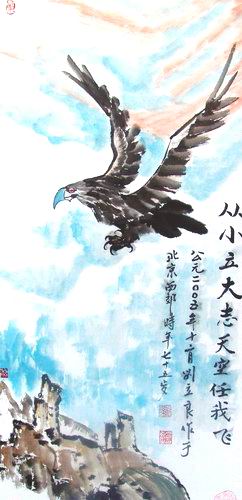 从小立大志天空任我飞
公元二00五年十月刘立良作于
北京西郊时年七十五岁